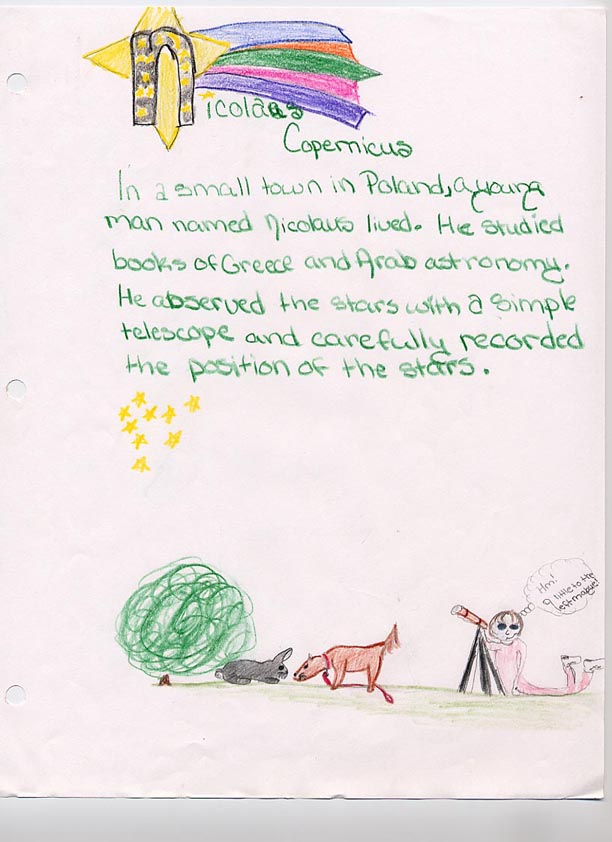 Nicolaus
Copernicus
In a small town in Poland, a young
man named Nicolaus lived. He studied
books of Greece and Arab astronomy.
He observed the stars with a simple
telescope and carefully recorded
the position of the stars.
Hm!
a little to the
left maybe!